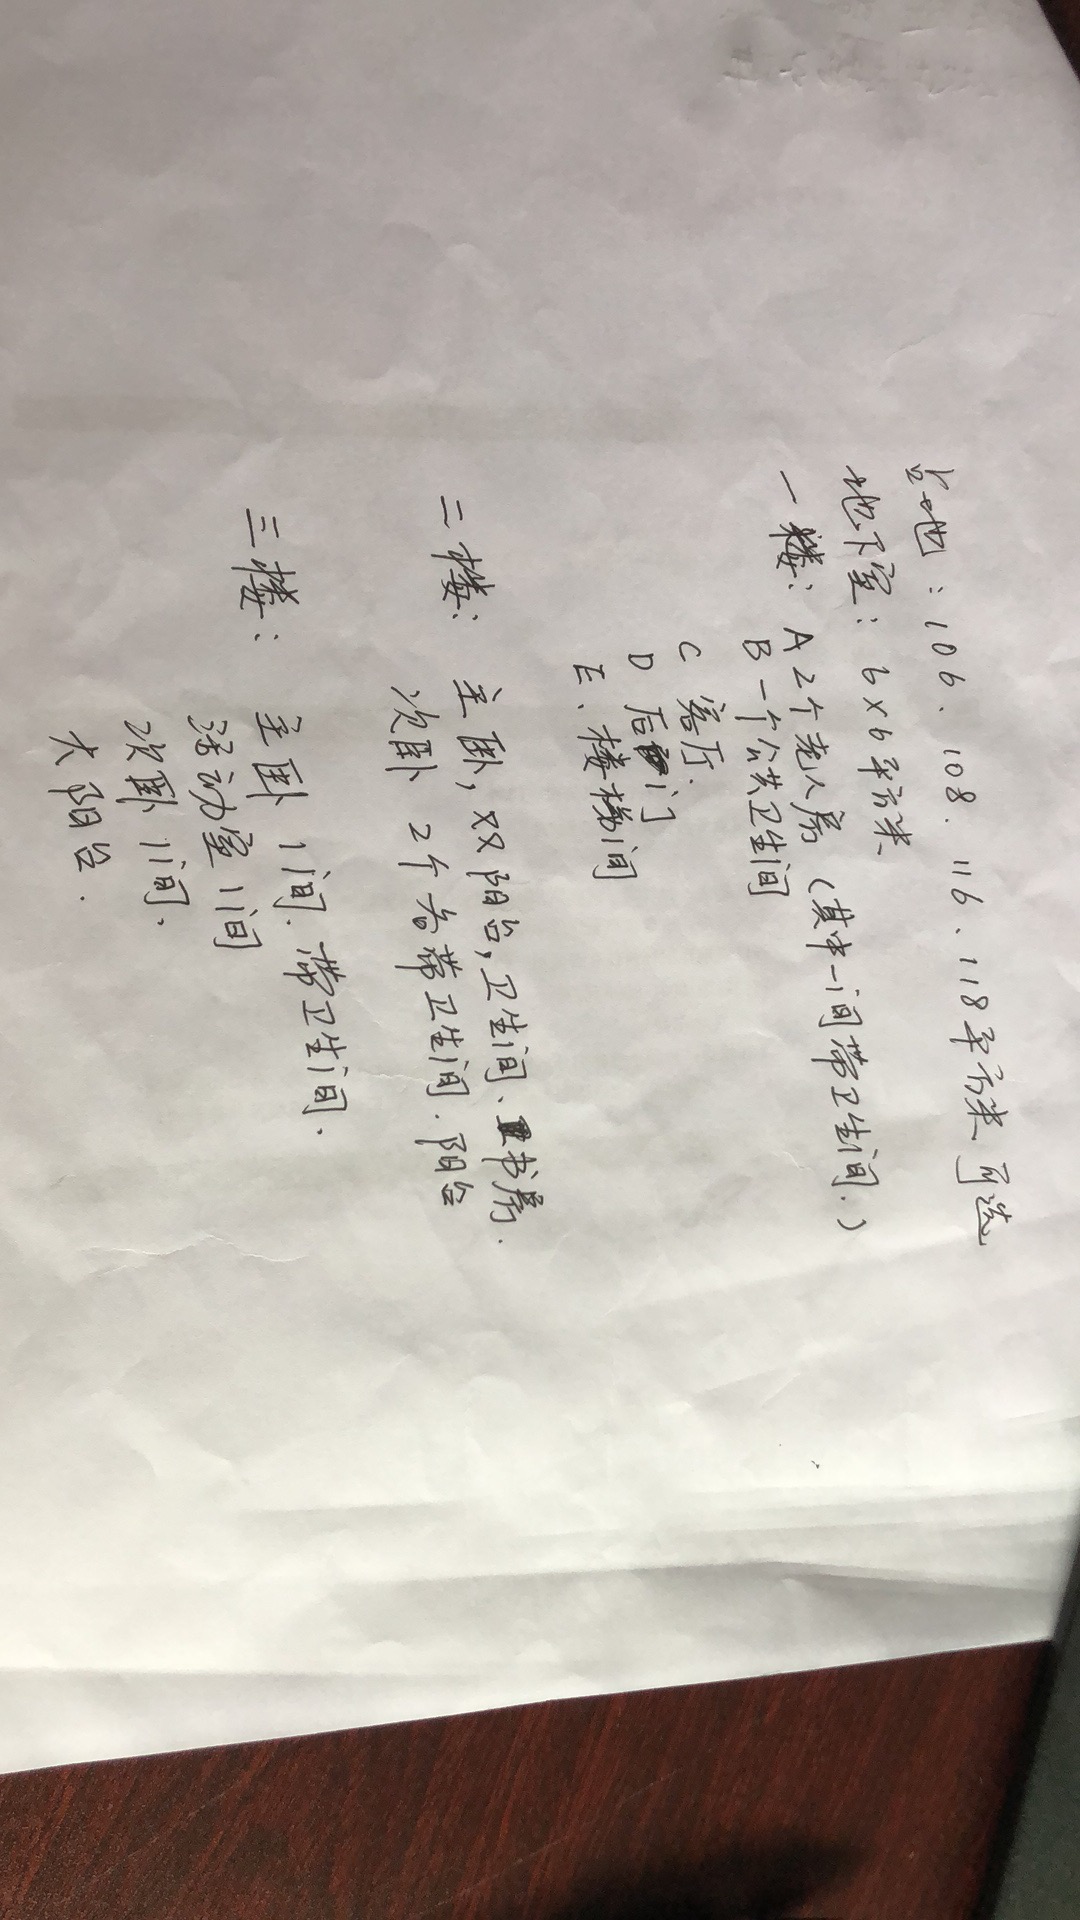 占地：106. 108. 116. 118平方米可选
地下室：6×6平方米
一楼：A 2个老人房（其中一间带卫生间.）
B 一个公共卫生间
C 客厅.
D 后门
E、楼梯间
二楼：主卧，双阳台，卫生间、书房.
次卧 2个各带卫生间.阳台
三楼：主卧 1间.带卫生间.
活动室1间
次卧 1间.
大阳台.